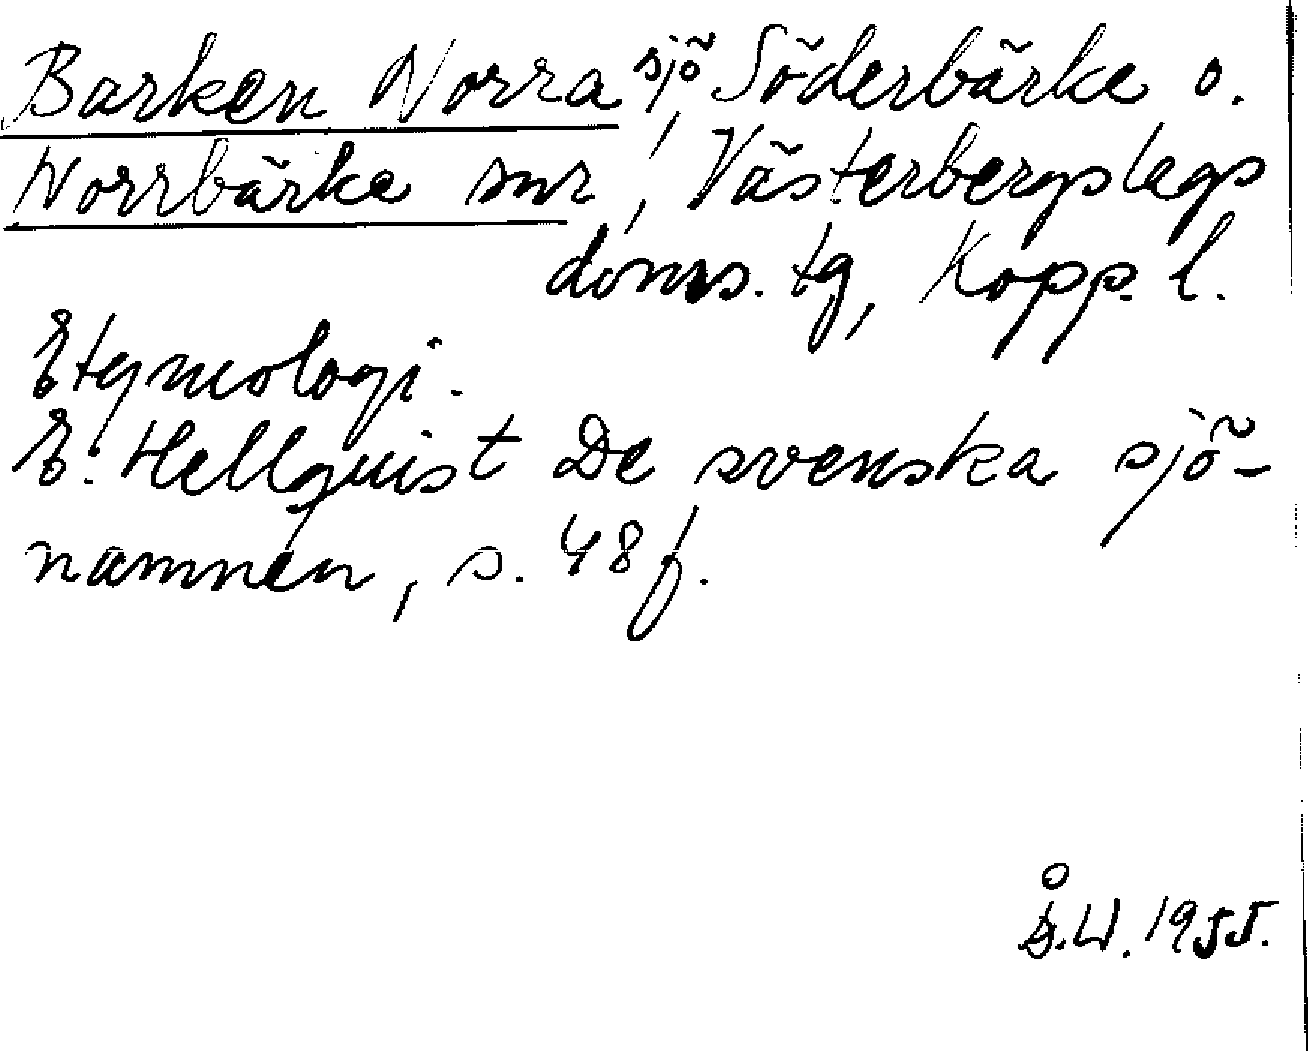 Barken Norra sjö, Söderbärke o.
Norrbärke snr, Västerbergslags
doms. tg, Kopp. l.
Etymologi.
E. Hellquist De svenska sjö-
namnen, s. 48 f.
Å.W. 1955.